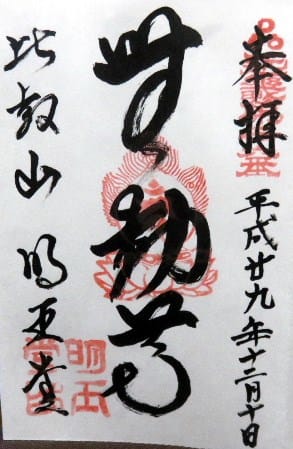 奉拝
平成廿九年十二月十日
無動尊
比叡山 明王堂
明王
堂印